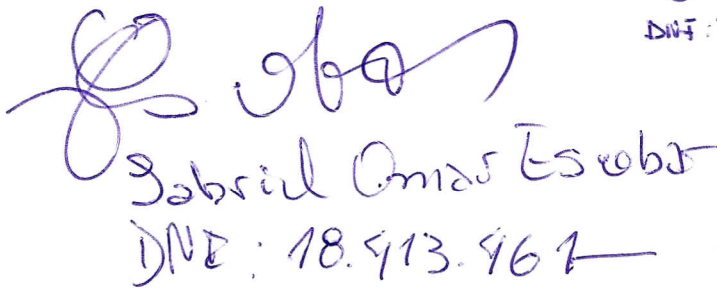 DNI:
Gabriel Omar Escobar
DNI: 18.413.461